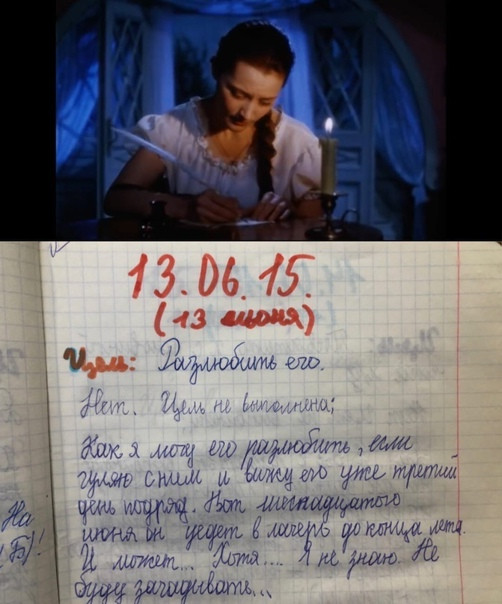 13.06.15.
(13 июня)
Цель: Разлюбить его.
Нет. Цель не выполнена;
Как я могу его разлюбить, если
гуляю с ним и вижу его уже третий
день подряд. Вот шестнадцатого
июня он уедет в лагерь до конца лета.
И может... Хотя.... Я не знаю. Не
буду загадывать...
На
(Б)!